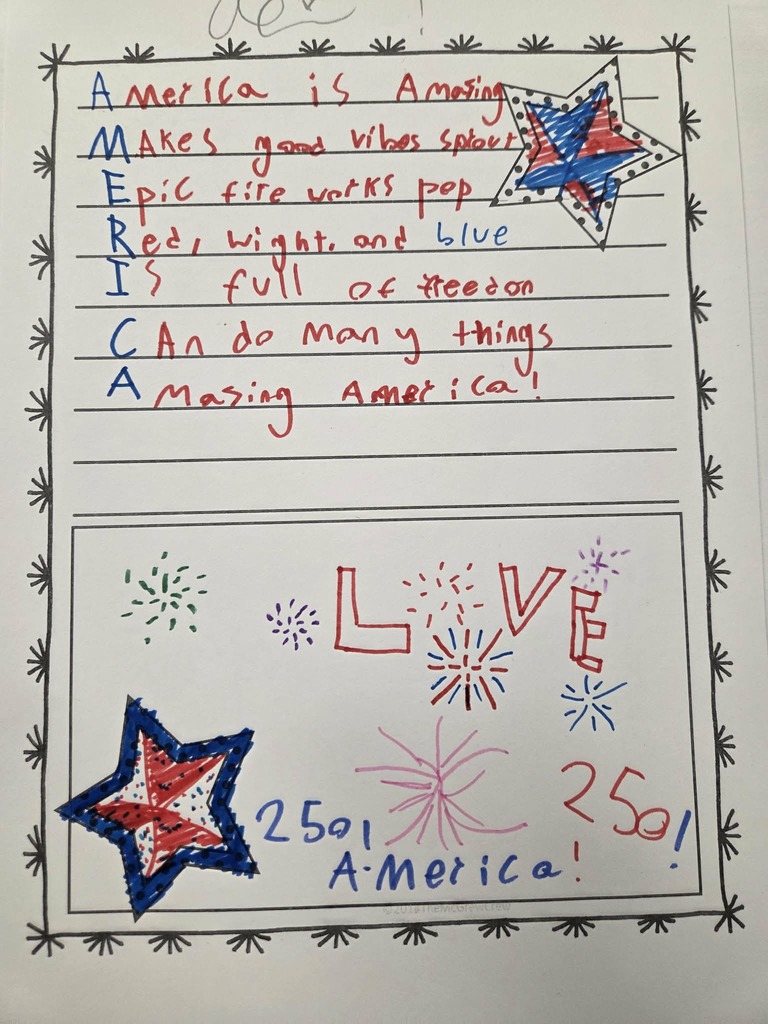 America is Amasing
MAkes good vibes sprout
Epic fire works pop
Red, wight, and blue
IS full of freedon
CAn do many things
AMasing America!
LOVE
250!
250!
America!